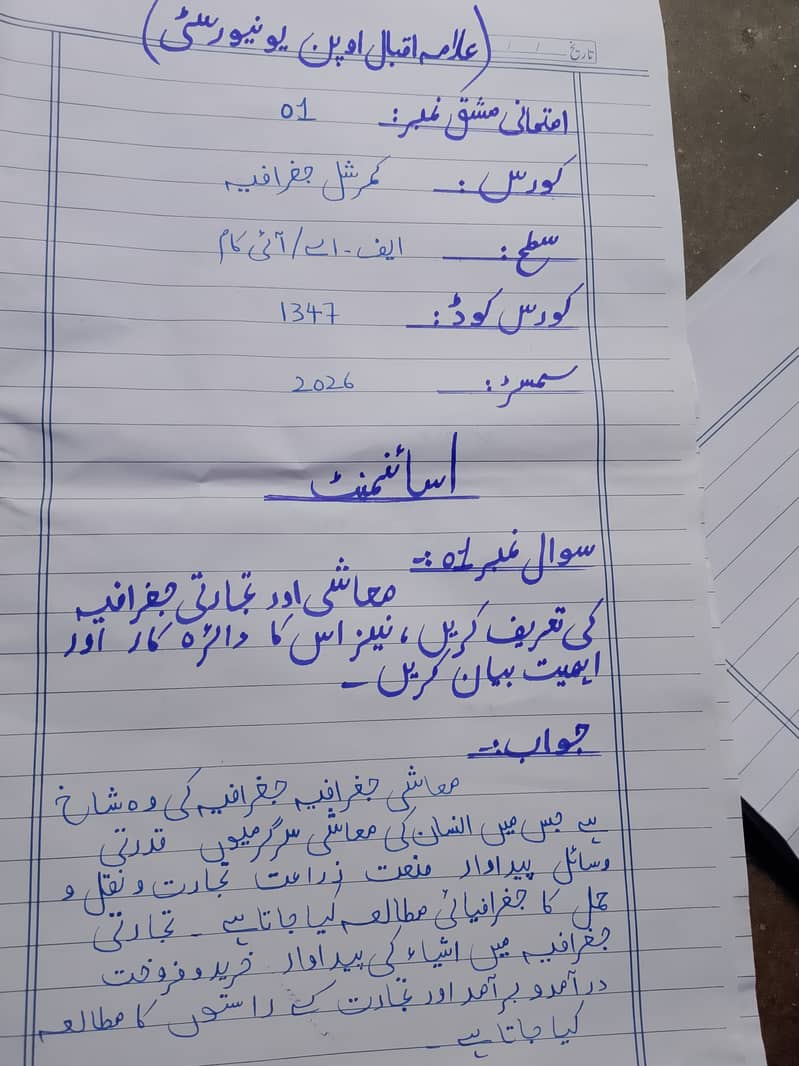 (علامہ اقبال اوپن یونیورسٹی)
تاریخ / /
امتحانی مشق نمبر: 01
کورس: کمرشل جغرافیہ
سطح: ایف۔اے/آئی کام
کورس کوڈ: 1347
سمسٹر: 2026
اسائنمنٹ
سوال نمبر 01:-
معاشی اور تجارتی جغرافیہ
کی تعریف کریں، نیز اس کا دائرہ کار اور
اہمیت بیان کریں۔
جواب:-
معاشی جغرافیہ جغرافیہ کی وہ شاخ
ہے جس میں انسان کی معاشی سرگرمیوں قدرتی
وسائل پیداوار صنعت زراعت تجارت و نقل و
حمل کا جغرافیائی مطالعہ کیا جاتا ہے۔ تجارتی
جغرافیہ میں اشیاء کی پیداوار خرید و فروخت
درآمد و برآمد اور تجارت کے راستوں کا مطالعہ
کیا جاتا ہے۔